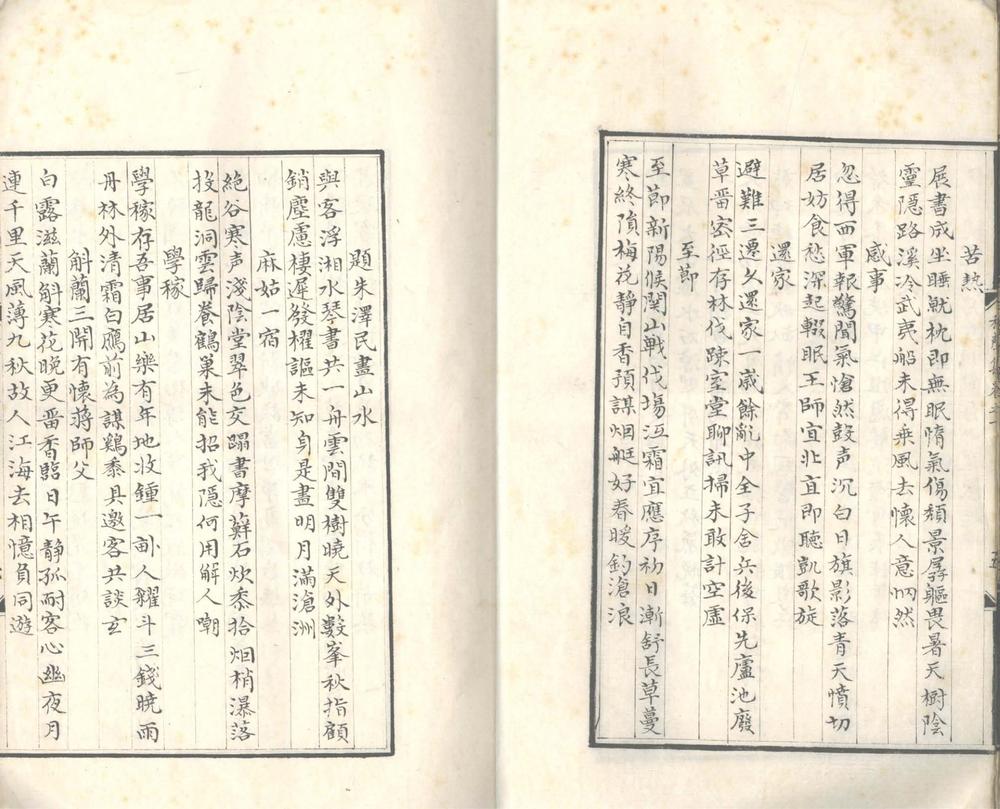 苦熱
展書成坐睡就枕即無眠惰氣傷頽景孱軀畏暑天樹陰
靈隐路溪冷武夷船未得乗風去懷人意惘然
感事
忽得西軍報驚聞氣愴然鼓声沉白日旗影落青天憤切
居妨食愁深起輟眠王師宜北宜即聽凱歌旋
還家
避難三遷久還家一歲餘亂中全子舍兵後保先廬池廢
草畨密徑存林伐踈室堂聊訊掃未敢計空虛
至節
至節新陽候関山戰伐塲江霜宜應序初日漸舒長草蔓
寒終隕梅花静自香預謀烟艇好春暖釣滄浪
題朱澤民畫山水
與客浮湘水琴書共一舟雲間雙樹曉天外數峯秋指顧
銷塵慮棲遲發櫂謳未知身是畫明月滿滄洲
麻姑一宿
絶谷寒声淺陰堂翠色交蹋書摩蘚石炊黍拾烟梢瀑落
投龍洞雲歸養鶴巢未能招我隐何用解人嘲
學稼
學稼存吾事居山樂有年地收鍾一畝人糴斗三錢曉雨
丹林外清霜白鴈前為謀鷄黍具邀客共談玄
斛蘭三開有懷蔣師父
白露滋蘭斛寒花晚更畨香臨日午静孤耐客心幽夜月
連千里天風薄九秋故人江海去相憶負同遊